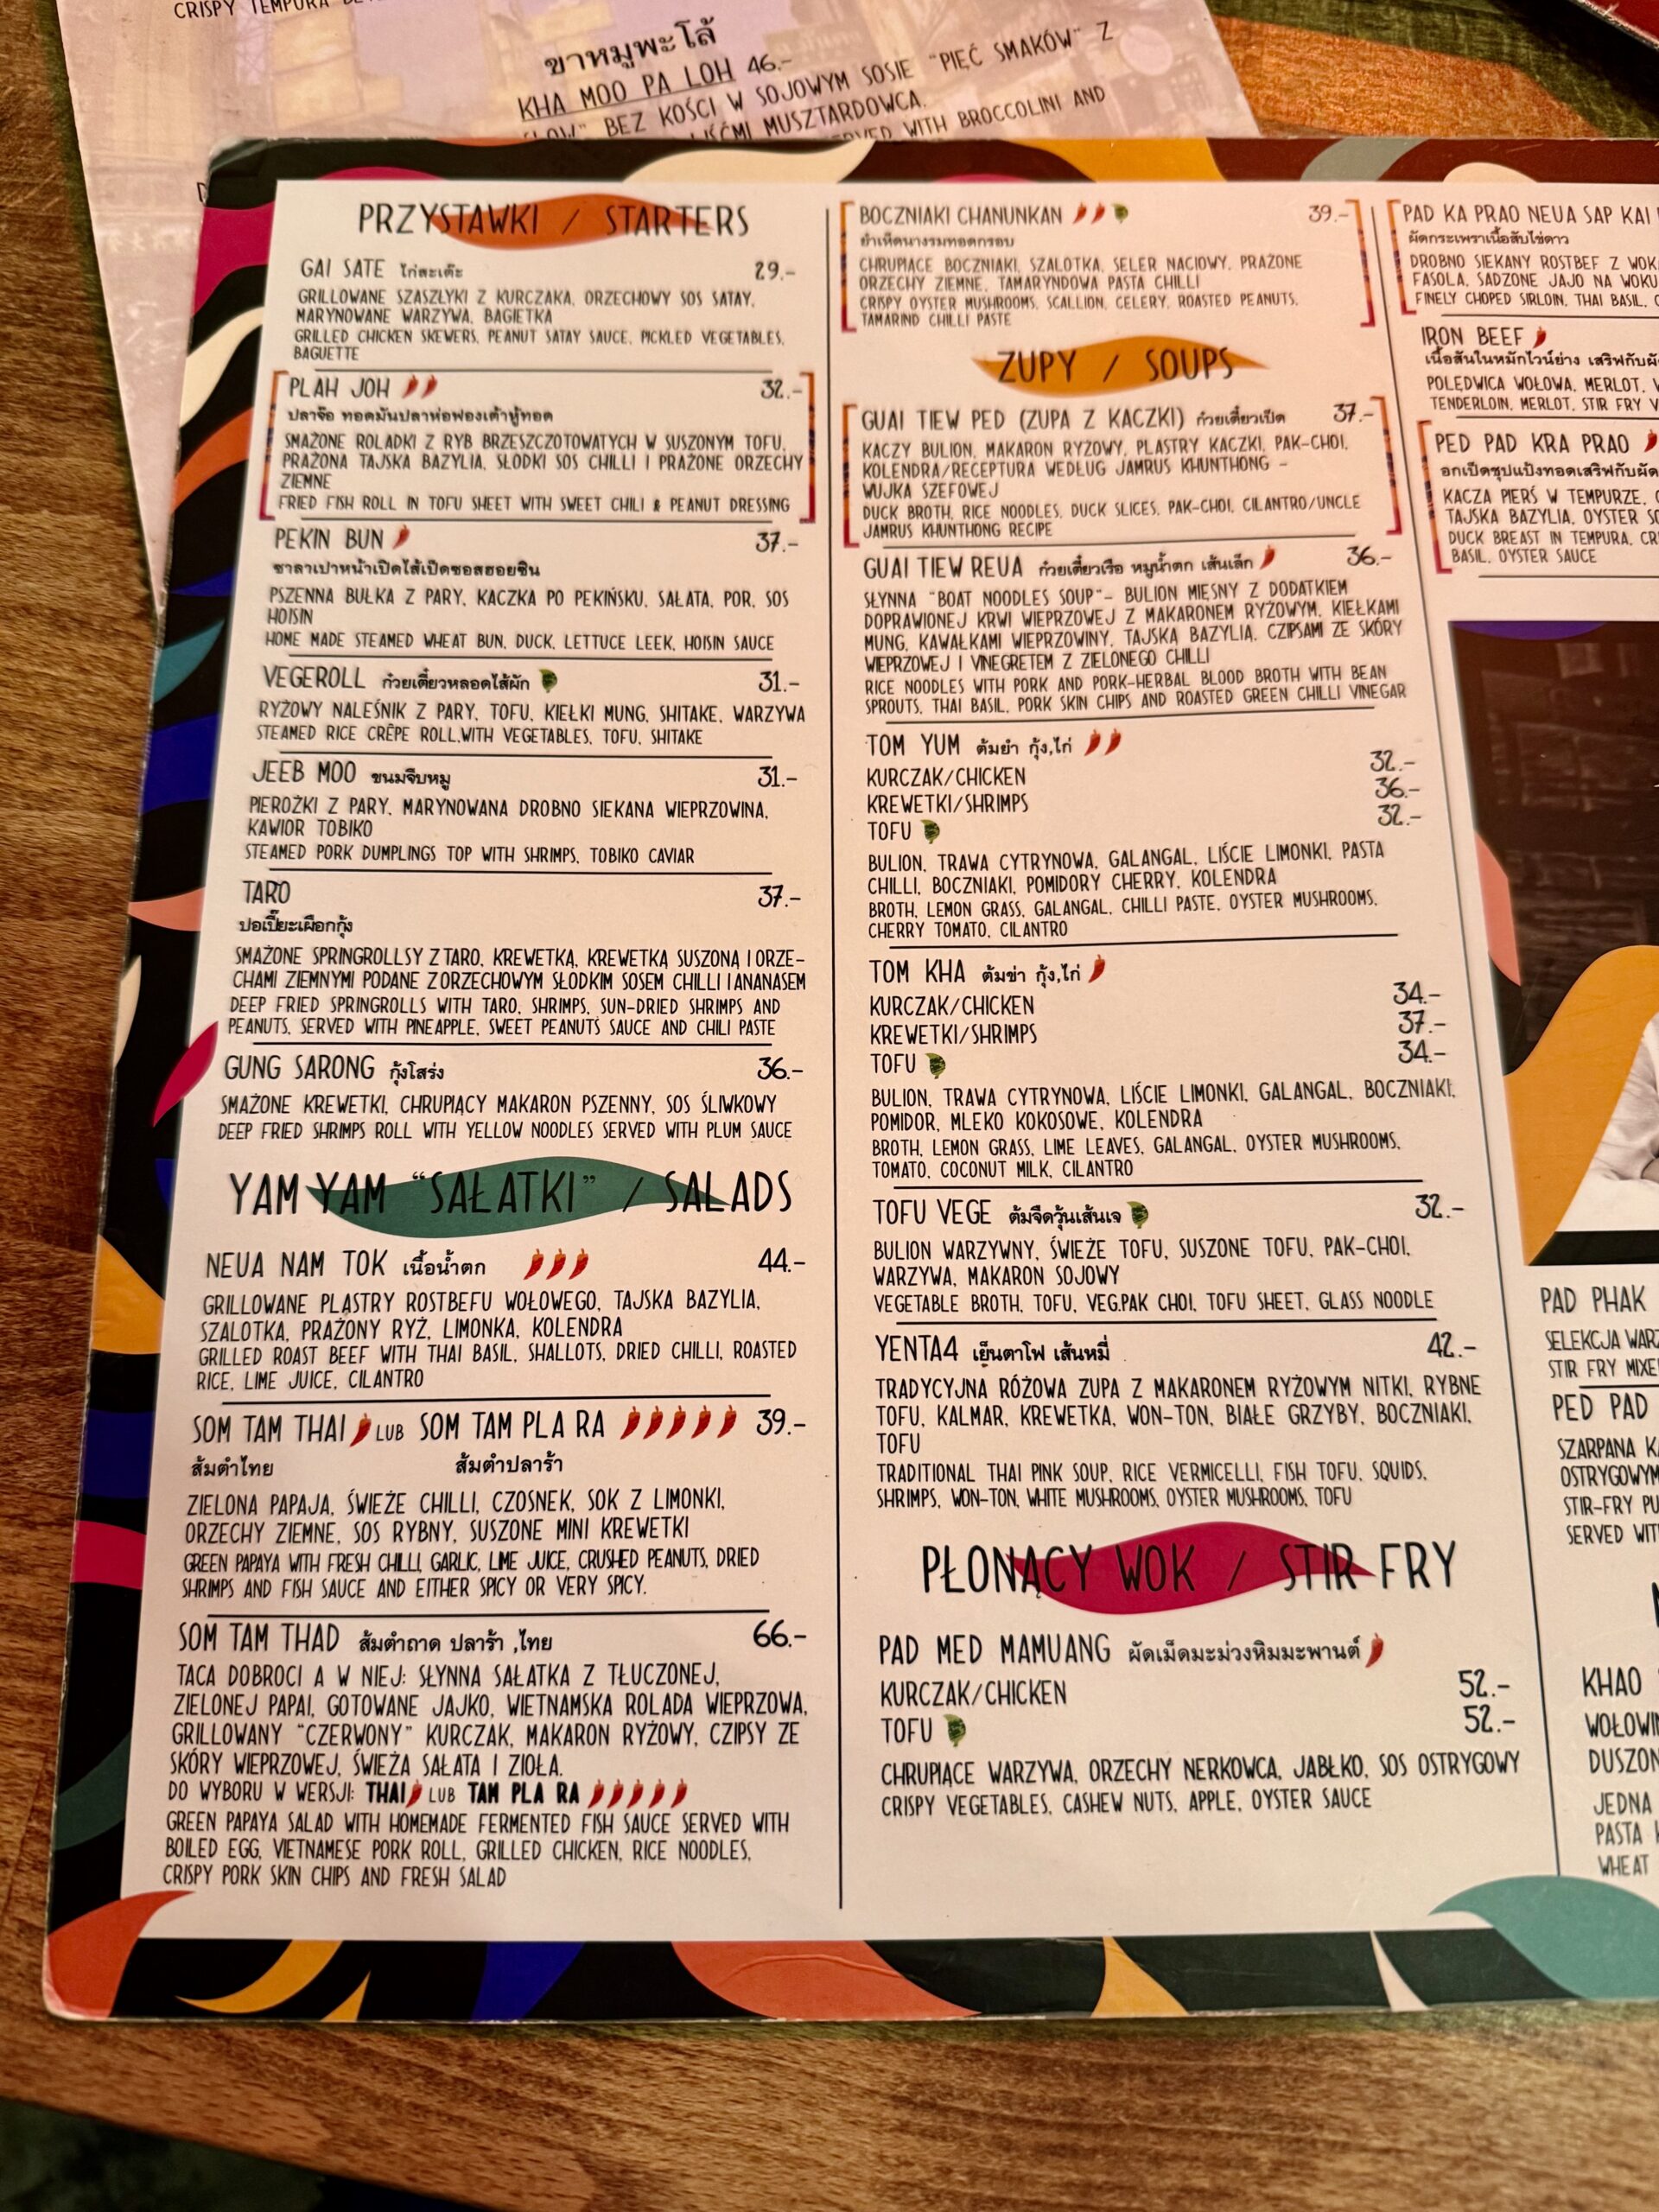 CRISPY TEMPURA
ขาหมูพะโล้
KHA MOO PA LOH 46.-
BEZ KOŚCI W SOJOWYM SOSIE "PIĘĆ SMAKÓW" Z
LIŚĆMI MUSZTARDOWCA.
WITH BROCCOLINI AND
PRZYSTAWKI / STARTERS
GAI SATE ไก่สะเต๊ะ 29.-
GRILLOWANE SZASZŁYKI Z KURCZAKA, ORZECHOWY SOS SATAY,
MARYNOWANE WARZYWA, BAGIETKA
GRILLED CHICKEN SKEWERS, PEANUT SATAY SAUCE, PICKLED VEGETABLES,
BAGUETTE
PLAH JOH 32.-
ปลาจ๊อ ทอดมันปลาห่อฟองเต้าหู้ทอด
SMAŻONE ROLADKI Z RYB BRZESZCZOTOWATYCH W SUSZONYM TOFU,
PRAŻONA TAJSKA BAZYLIA, SŁODKI SOS CHILLI I PRAŻONE ORZECHY
ZIEMNE
FRIED FISH ROLL IN TOFU SHEET WITH SWEET CHILI & PEANUT DRESSING
PEKIN BUN 37.-
ซาลาเปาหน้าเปิดไส้เป็ดซอสฮอยซิน
PSZENNA BUŁKA Z PARY, KACZKA PO PEKIŃSKU, SAŁATA, POR, SOS
HOISIN
HOME MADE STEAMED WHEAT BUN, DUCK, LETTUCE LEEK, HOISIN SAUCE
VEGEROLL ก๋วยเตี๋ยวหลอดไส้ผัก 31.-
RYŻOWY NALEŚNIK Z PARY, TOFU, KIEŁKI MUNG, SHITAKE, WARZYWA
STEAMED RICE CRÊPE ROLL.WITH VEGETABLES, TOFU, SHITAKE
JEEB MOO ขนมจีบหมู 31.-
PIEROŻKI Z PARY, MARYNOWANA DROBNO SIEKANA WIEPRZOWINA,
KAWIOR TOBIKO
STEAMED PORK DUMPLINGS TOP WITH SHRIMPS, TOBIKO CAVIAR
TARO 37.-
ปอเปี๊ยะเผือกกุ้ง
SMAŻONE SPRINGROLLSY Z TARO, KREWETKĄ, KREWETKĄ SUSZONĄ I ORZE-
CHAMI ZIEMNYMI PODANE Z ORZECHOWYM SŁODKIM SOSEM CHILLI I ANANASEM
DEEP FRIED SPRINGROLLS WITH TARO, SHRIMPS, SUN-DRIED SHRIMPS AND
PEANUTS, SERVED WITH PINEAPPLE, SWEET PEANUTS SAUCE AND CHILI PASTE
GUNG SARONG กุ้งโสร่ง 36.-
SMAŻONE KREWETKI, CHRUPIĄCY MAKARON PSZENNY, SOS ŚLIWKOWY
DEEP FRIED SHRIMPS ROLL WITH YELLOW NOODLES SERVED WITH PLUM SAUCE
YAM YAM "SAŁATKI" / SALADS
NEUA NAM TOK เนื้อน้ำตก 44.-
GRILLOWANE PLASTRY ROSTBEFU WOŁOWEGO, TAJSKA BAZYLIA,
SZALOTKA, PRAŻONY RYŻ, LIMONKA, KOLENDRA
GRILLED ROAST BEEF WITH THAI BASIL, SHALLOTS, DRIED CHILLI, ROASTED
RICE, LIME JUICE, CILANTRO
SOM TAM THAI LUB SOM TAM PLA RA 39.-
ส้มตำไทย ส้มตำปลาร้า
ZIELONA PAPAJA, ŚWIEŻE CHILLI, CZOSNEK, SOK Z LIMONKI,
ORZECHY ZIEMNE, SOS RYBNY, SUSZONE MINI KREWETKI
GREEN PAPAYA WITH FRESH CHILLI, GARLIC, LIME JUICE, CRUSHED PEANUTS, DRIED
SHRIMPS AND FISH SAUCE AND EITHER SPICY OR VERY SPICY.
SOM TAM THAD ส้มตำถาด ปลาร้า ,ไทย 66.-
TACA DOBROCI A W NIEJ: SŁYNNA SAŁATKA Z TŁUCZONEJ,
ZIELONEJ PAPAI, GOTOWANE JAJKO, WIETNAMSKA ROLADA WIEPRZOWA,
GRILLOWANY "CZERWONY" KURCZAK, MAKARON RYŻOWY, CZIPSY ZE
SKÓRY WIEPRZOWEJ, ŚWIEŻA SAŁATA I ZIOŁA.
DO WYBORU W WERSJI: THAI LUB TAM PLA RA
GREEN PAPAYA SALAD WITH HOMEMADE FERMENTED FISH SAUCE SERVED WITH
BOILED EGG, VIETNAMESE PORK ROLL, GRILLED CHICKEN, RICE NOODLES,
CRISPY PORK SKIN CHIPS AND FRESH SALAD
BOCZNIAKI CHANUNKAN 39.-
ยำเห็ดนางรมทอดกรอบ
CHRUPIĄCE BOCZNIAKI, SZALOTKA, SELER NACIOWY, PRAŻONE
ORZECHY ZIEMNE, TAMARYNDOWA PASTA CHILLI
CRISPY OYSTER MUSHROOMS, SCALLION, CELERY, ROASTED PEANUTS,
TAMARIND CHILLI PASTE
ZUPY / SOUPS
GUAI TIEW PED (ZUPA Z KACZKI) ก๋วยเตี๋ยวเป็ด 37.-
KACZY BULION, MAKARON RYŻOWY, PLASTRY KACZKI, PAK-CHOI,
KOLENDRA/RECEPTURA WEDŁUG JAMRUS KHUNTHONG -
WUJKA SZEFOWEJ
DUCK BROTH, RICE NOODLES, DUCK SLICES, PAK-CHOI, CILANTRO/UNCLE
JAMRUS KHUNTHONG RECIPE
GUAI TIEW REUA ก๋วยเตี๋ยวเรือ หมูน้ำตก เส้นเล็ก 36.-
SŁYNNA "BOAT NOODLES SOUP"- BULION MIĘSNY Z DODATKIEM
DOPRAWIONEJ KRWI WIEPRZOWEJ Z MAKARONEM RYŻOWYM, KIEŁKAMI
MUNG, KAWAŁKAMI WIEPRZOWINY, TAJSKĄ BAZYLIĄ, CZIPSAMI ZE SKÓRY
WIEPRZOWEJ I VINEGRETEM Z ZIELONEGO CHILLI
RICE NOODLES WITH PORK AND PORK-HERBAL BLOOD BROTH WITH BEAN
SPROUTS, THAI BASIL, PORK SKIN CHIPS AND ROASTED GREEN CHILLI VINEGAR
TOM YUM ต้มยำ กุ้ง,ไก่
KURCZAK/CHICKEN 32.-
KREWETKI/SHRIMPS 36.-
TOFU 32.-
BULION, TRAWA CYTRYNOWA, GALANGAL, LIŚCIE LIMONKI, PASTA
CHILLI, BOCZNIAKI, POMIDORY CHERRY, KOLENDRA
BROTH, LEMON GRASS, GALANGAL, CHILLI PASTE, OYSTER MUSHROOMS,
CHERRY TOMATO, CILANTRO
TOM KHA ต้มข่า กุ้ง,ไก่
KURCZAK/CHICKEN 34.-
KREWETKI/SHRIMPS 37.-
TOFU 34.-
BULION, TRAWA CYTRYNOWA, LIŚCIE LIMONKI, GALANGAL, BOCZNIAKI,
POMIDOR, MLEKO KOKOSOWE, KOLENDRA
BROTH, LEMON GRASS, LIME LEAVES, GALANGAL, OYSTER MUSHROOMS,
TOMATO, COCONUT MILK, CILANTRO
TOFU VEGE ต้มจืดวุ้นเส้นเจ 32.-
BULION WARZYWNY, ŚWIEŻE TOFU, SUSZONE TOFU, PAK-CHOI,
WARZYWA, MAKARON SOJOWY
VEGETABLE BROTH, TOFU, VEG,PAK CHOI, TOFU SHEET, GLASS NOODLE
YENTA4 เย็นตาโฟ เส้นหมี่ 42.-
TRADYCYJNA RÓŻOWA ZUPA Z MAKARONEM RYŻOWYM NITKI, RYBNE
TOFU, KALMAR, KREWETKA, WON-TON, BIAŁE GRZYBY, BOCZNIAKI,
TOFU
TRADITIONAL THAI PINK SOUP, RICE VERMICELLI, FISH TOFU, SQUIDS,
SHRIMPS, WON-TON, WHITE MUSHROOMS, OYSTER MUSHROOMS, TOFU
PŁONĄCY WOK / STIR FRY
PAD MED MAMUANG ผัดเม็ดมะม่วงหิมมะพานต์
KURCZAK/CHICKEN 52.-
TOFU 52.-
CHRUPIĄCE WARZYWA, ORZECHY NERKOWCA, JABŁKO, SOS OSTRYGOWY
CRISPY VEGETABLES, CASHEW NUTS, APPLE, OYSTER SAUCE
PAD KA PRAO NEUA SAP KAI
ผัดกระเพราเนื้อสับไข่ดาว
DROBNO SIEKANY ROSTBEF Z WOK
FASOLA, SADZONE JAJO NA WOKU
FINELY CHOPED SIRLOIN, THAI BASIL,
IRON BEEF
เนื้อสันในหมักไวน์ย่าง เสริฟกับผั
POLĘDWICA WOŁOWA, MERLOT,
TENDERLOIN, MERLOT, STIR FRY
PED PAD KRA PRAO
อกเป็ดชุปแป้งทอดเสริฟกับผัด
KACZA PIERŚ W TEMPURZE,
TAJSKA BAZYLIA, OYSTER
DUCK BREAST IN TEMPURA,
BASIL, OYSTER SAUCE
PAD PHAK
SELEKCJA
STIR FRY
PED PAD
SZARPANA
OSTRYGOWYM
STIR-FRY
SERVED
KHAO
JEDNA
PASTA
WHEAT